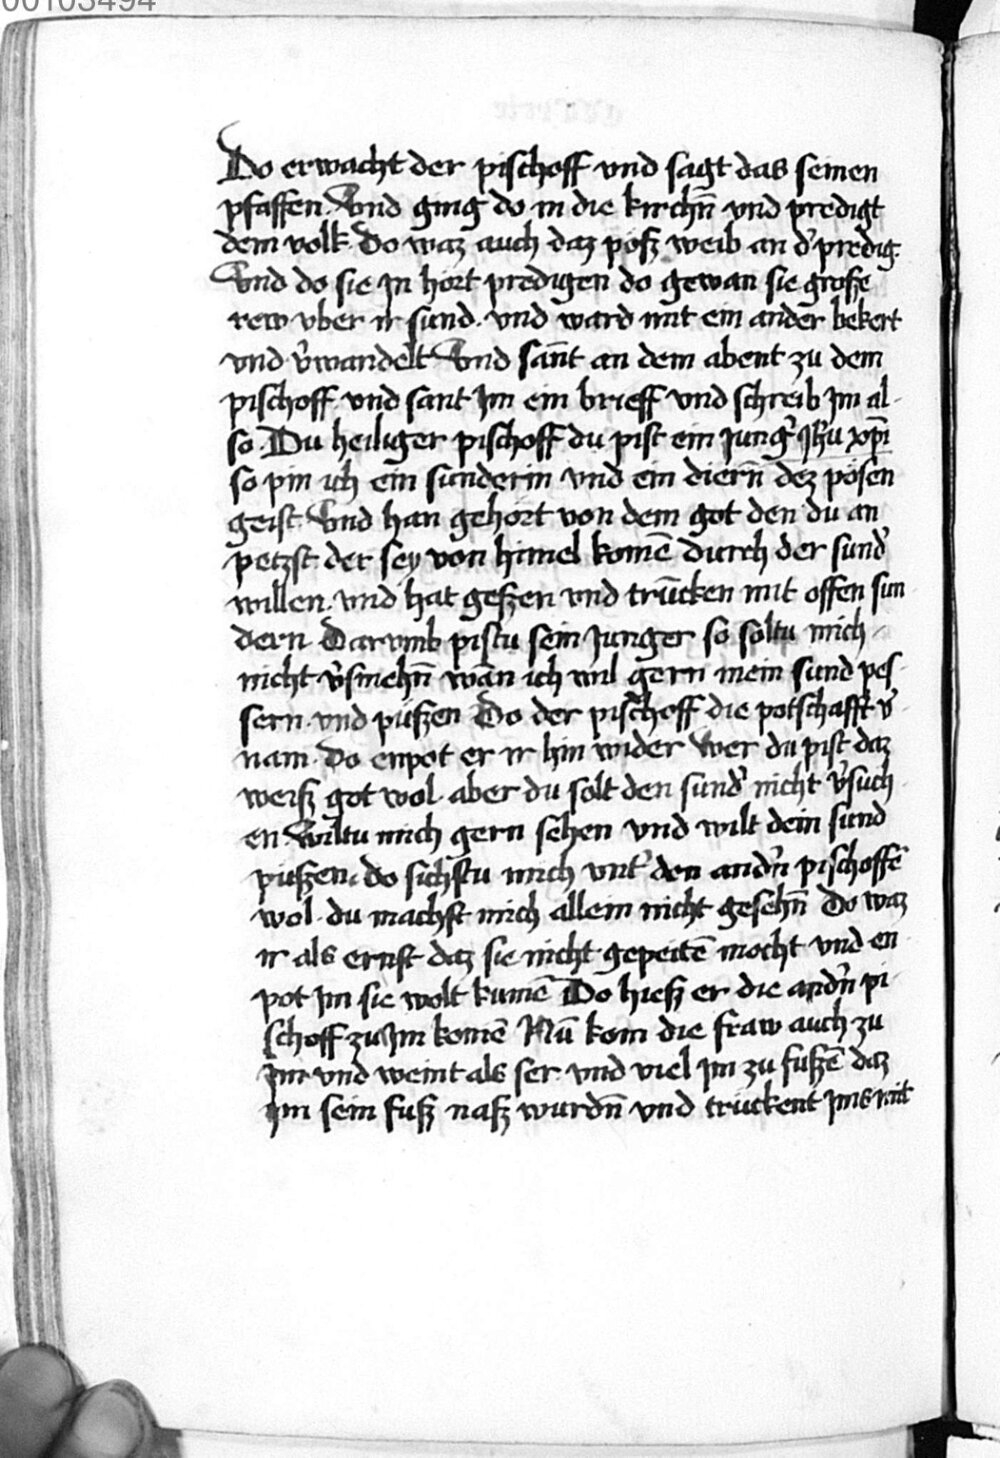 00103494
Do erwacht der pischoff vnd sagt das seinen
pfaffen. Vnd ging do in die kirchn̄ vnd predigt
dem volk. Do waz auch daz pöß weib an d' predig.
Vnd do sie jn hort predigen do gewan sie große
rew vber ir sund. vnd ward mit ein ander bekert
vnd v'wandelt Vnd sān̄t an dem abent zu dem
pischoff. vnd sant jm ein brieff vnd schreib jm al-
so. Du heiliger pischoff du pist ein jung' jh̄u xp̄i
so pin ich ein sunderin vnd ein diern̄ dez pösen
geist. Vnd han gehört von dem got den du an
petzst. der sey von himel komē durch der sund'
willen. vnd hat geßen vnd trūcken mit offen sun
dern Darvmb pistu sein junger so soltu mich
nicht v'smehn̄ wān ich wil gern mein sund pes-
sern. vnd püßen Do der pischoff die potschafft v'
nam. Do enpot er ir hin wider Wer du pist daz
weiß got wol. aber du solt den sund' nicht v'such
en. Wiltu mich gern sehen vnd wilt dein sund
püßen. do sichstu mich vnt' den and'n pischoffē
wol. du machst mich allein nicht gesehn̄ Do waz
ir als ernst daz sie nicht gepeitē mocht vnd en
pot jm sie wolt kumē Do hieß er die and'n pi-
schoff zu jm komē Nū kom die fraw auch zu
jm vnd weint als ser. vnd viel jm zu fußē daz
jm sein fuß naß wurdn̄ vnd trückent jms mit